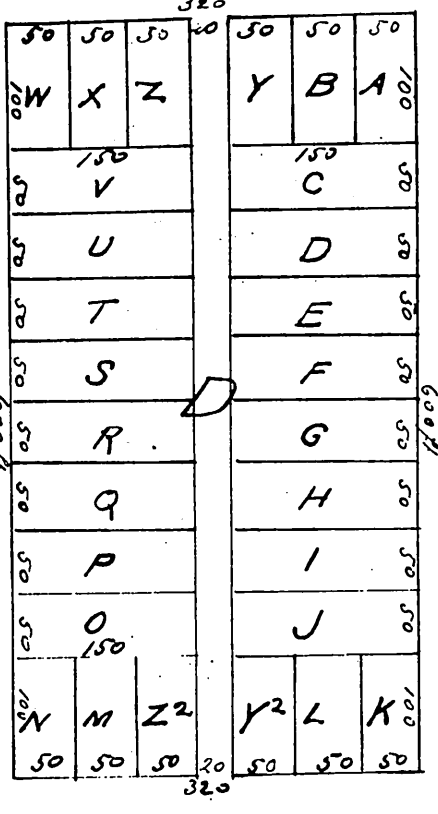 320
50 50 50 20 50 50 50
100 W X Z Y B A 100
150 150
50 V C 50
50 U D 50
50 T E 50
50 S F 50
D
50 R G 50
50 Q H 50
50 P I 50
50 O J 50
150
100 N M Z² Y² L K 100
50 50 50 20 50 50 50
320